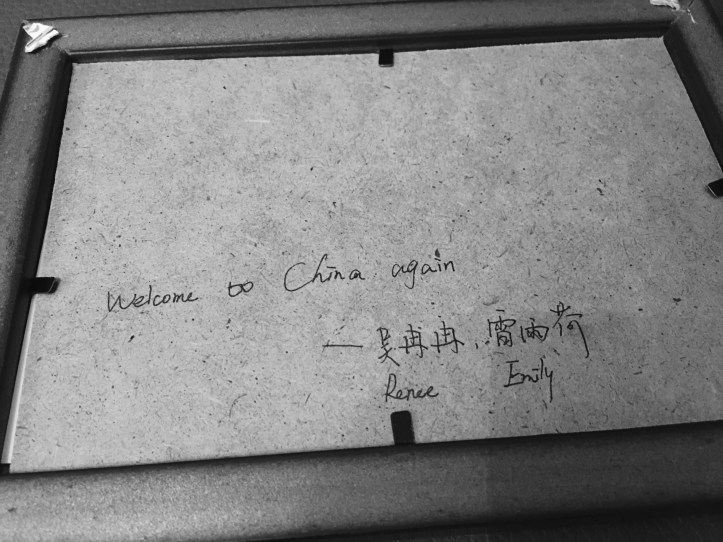 Welcome to China again
— 吴冉冉、雷雨荷
Renee Emily